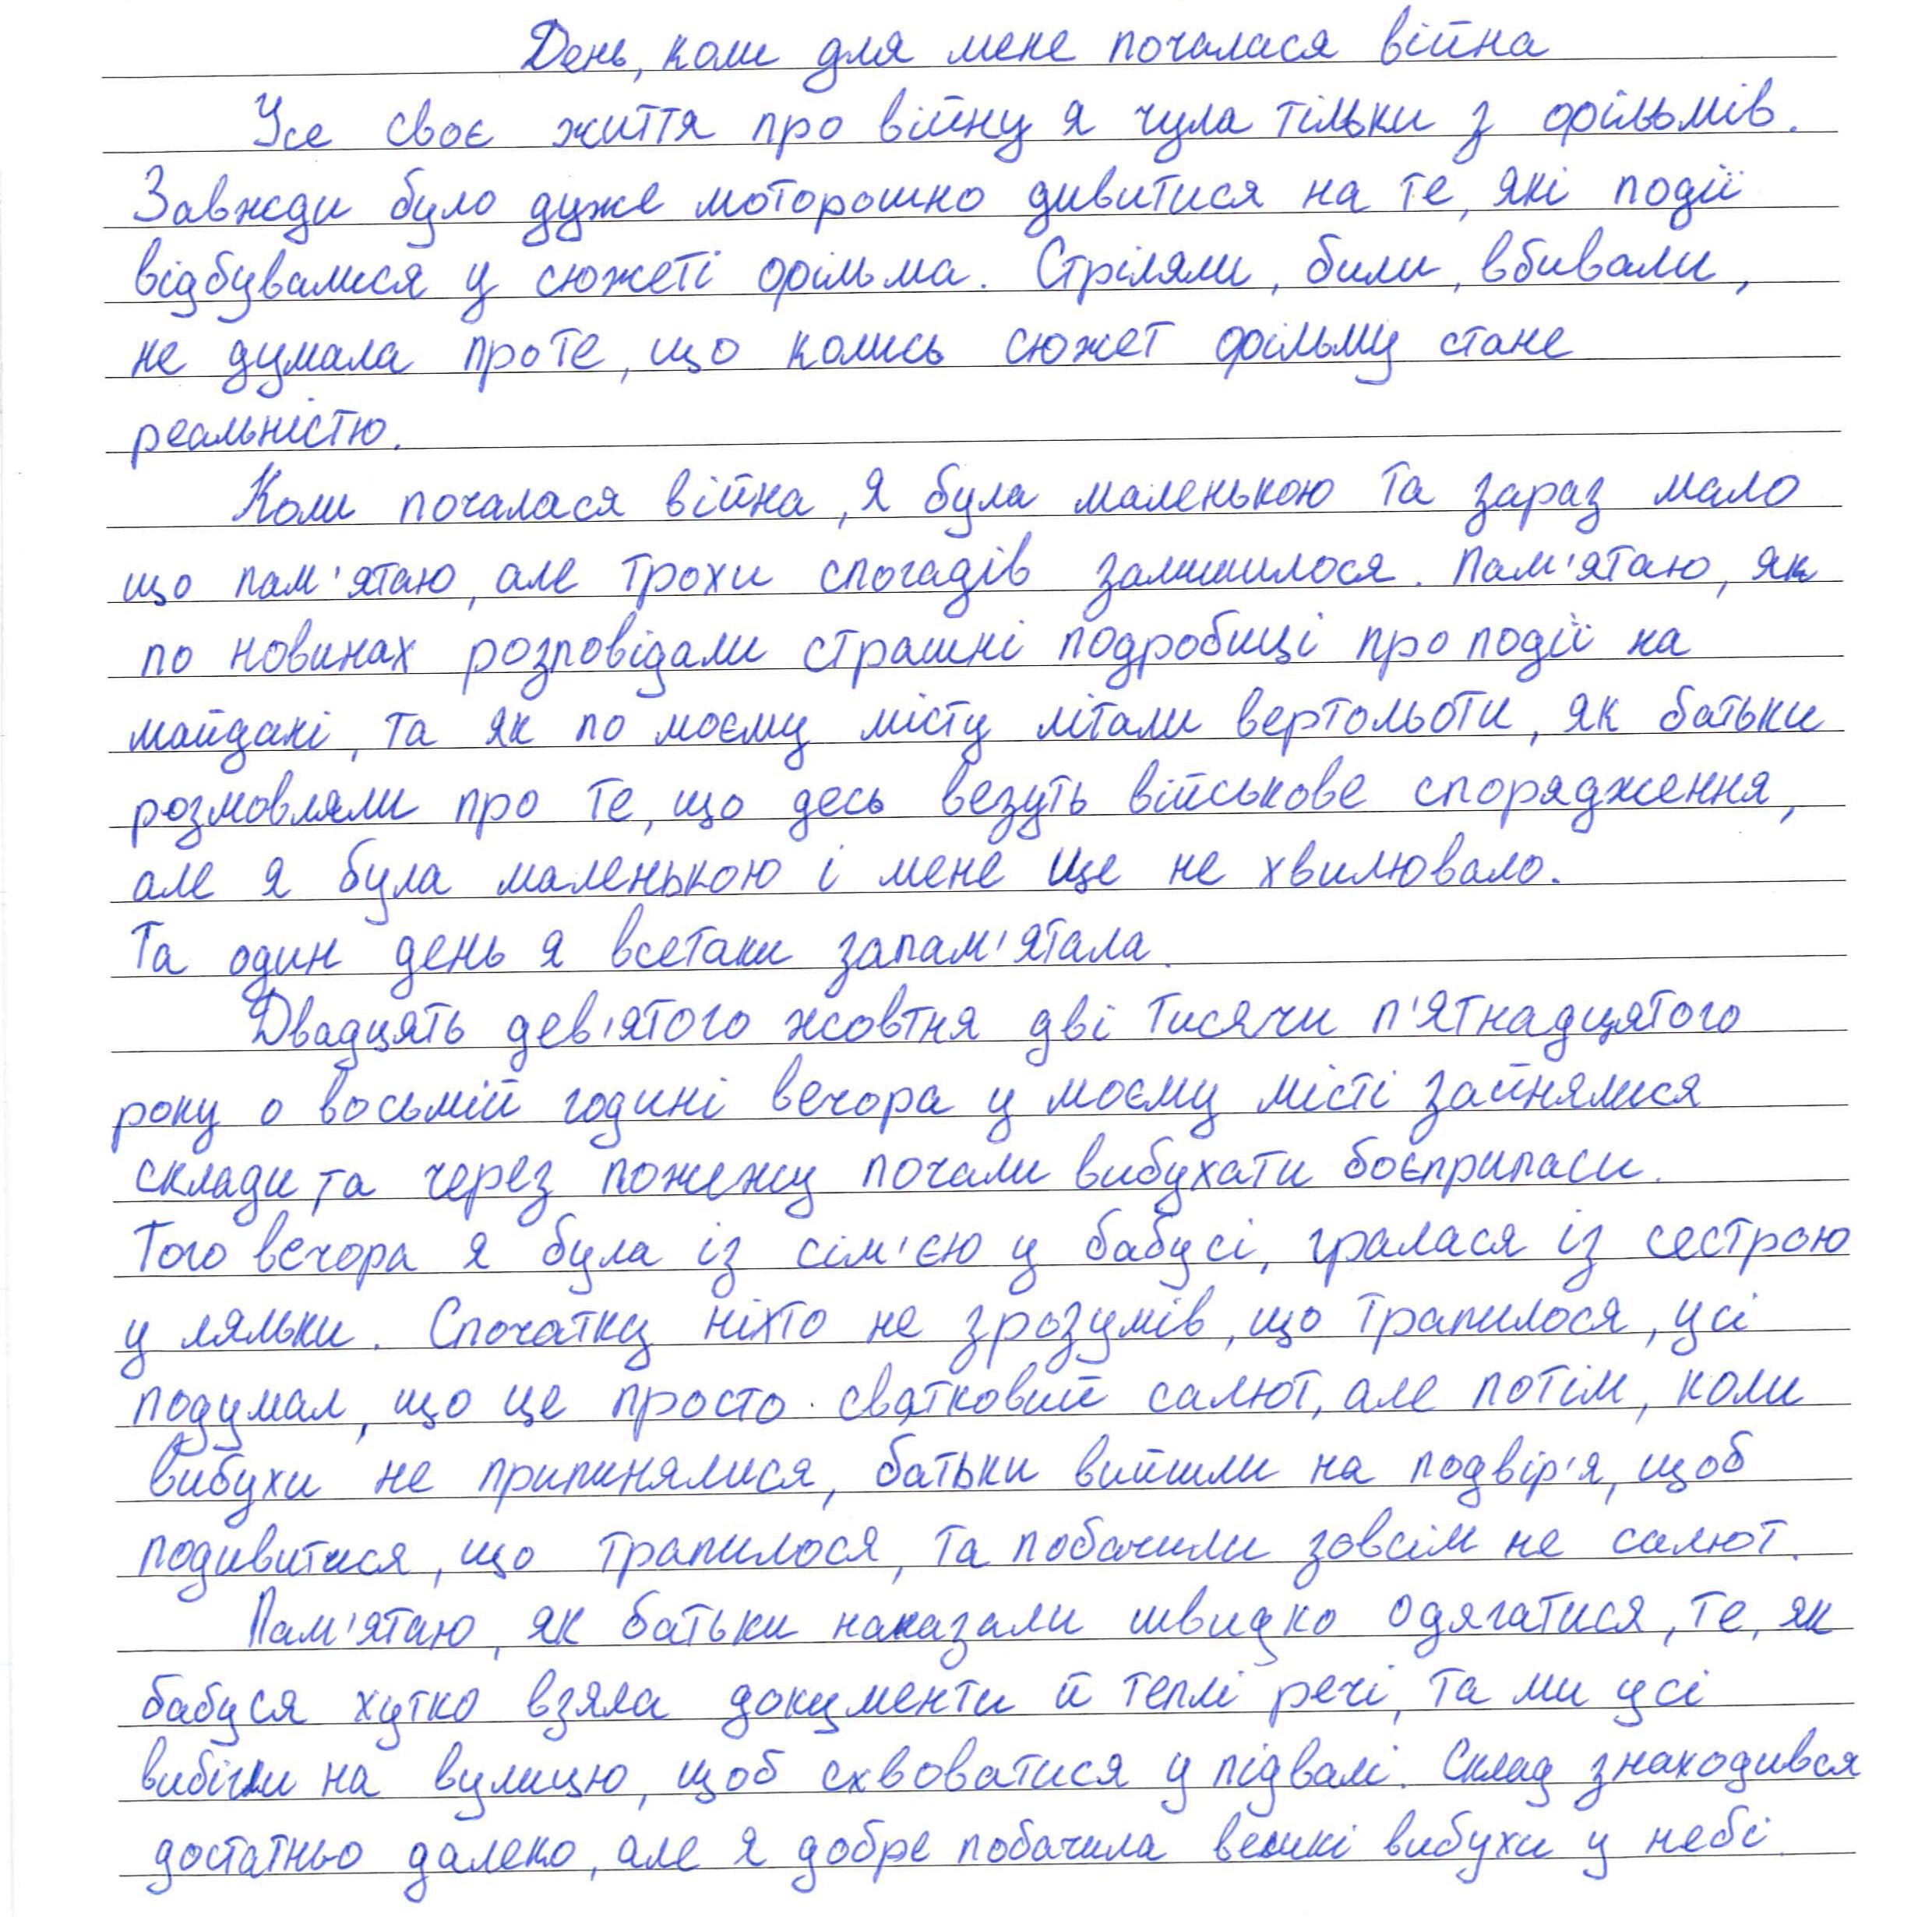 День, коли для мене почалася війна
Усе своє життя про війну я чула тільки з фільмів.
Завжди було дуже моторошно дивитися на те, які події
відбувалися у сюжеті фільма. Стріляли, били, вбивали,
не думала про те, що колись сюжет фільму стане
реальністю.
Коли почалася війна, я була маленькою та зараз мало
що пам'ятаю, але трохи спогадів залишилося. Пам'ятаю, як
по новинах розповідали страшні подробиці про події на
майдані, та як по моєму місту літали вертольоти, як батьки
розмовляли про те, що десь везуть військове спорядження,
але я була маленькою і мене ще не хвилювало.
Та один день я всетаки запам'ятала.
Двадцять дев'ятого жовтня дві тисячи п'ятнадцятого
року о восьмій годині вечора у моєму місті зайнялися
склади, та через пожежу почали вибухати боєприпаси.
Того вечора я була із сім'єю у бабусі, гралася із сестрою
у ляльки. Спочатку ніхто не зрозумів, що трапилося, усі
подумал, що це просто святковий салют, але потім, коли
вибухи не припинялися, батьки вийшли на подвір'я, щоб
подивитися, що трапилося, та побачили зовсім не салют.
Пам'ятаю, як батьки наказали швидко одягатися, те, як
бабуся хутко взяла документи й теплі речі, та ми усі
вибігли на вулицю, щоб схвоватися у підвалі. Склад знаходився
достатньо далеко, але я добре побачила великі вибухи у небі.